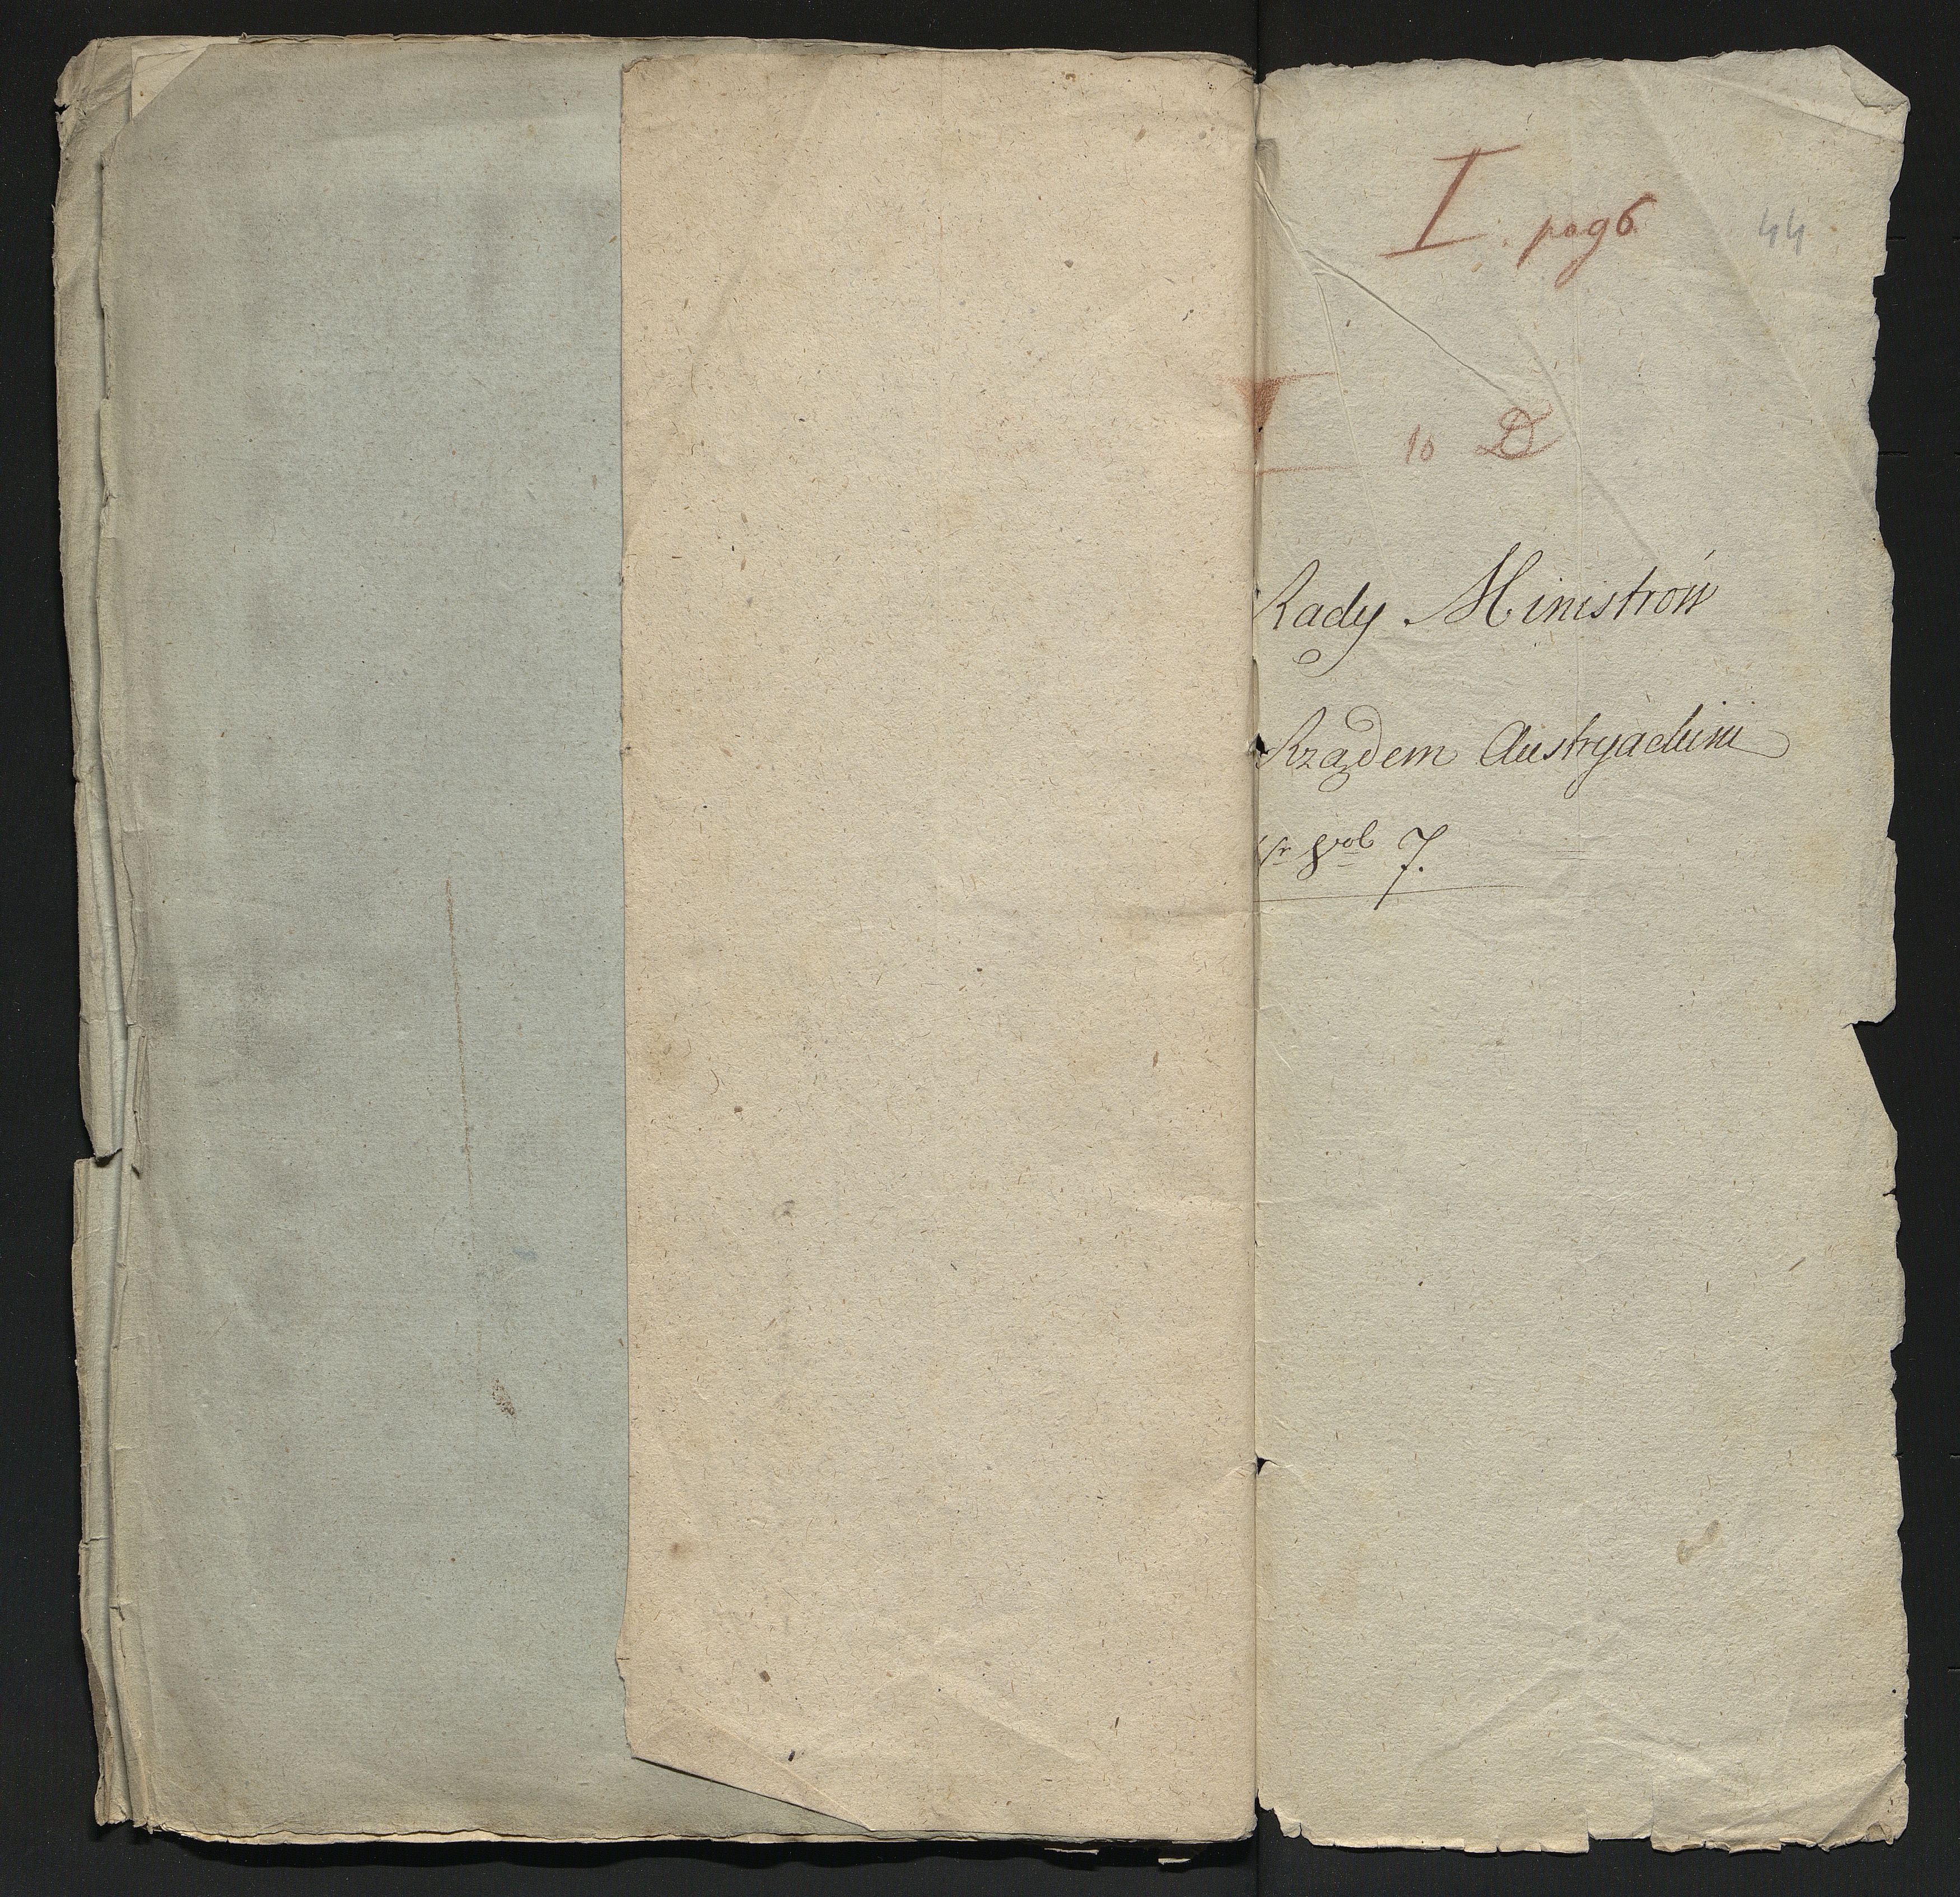 I. pag 6
44
I 10 D
Rady Ministrów
Rządem Austryackim
Nr vol 7.